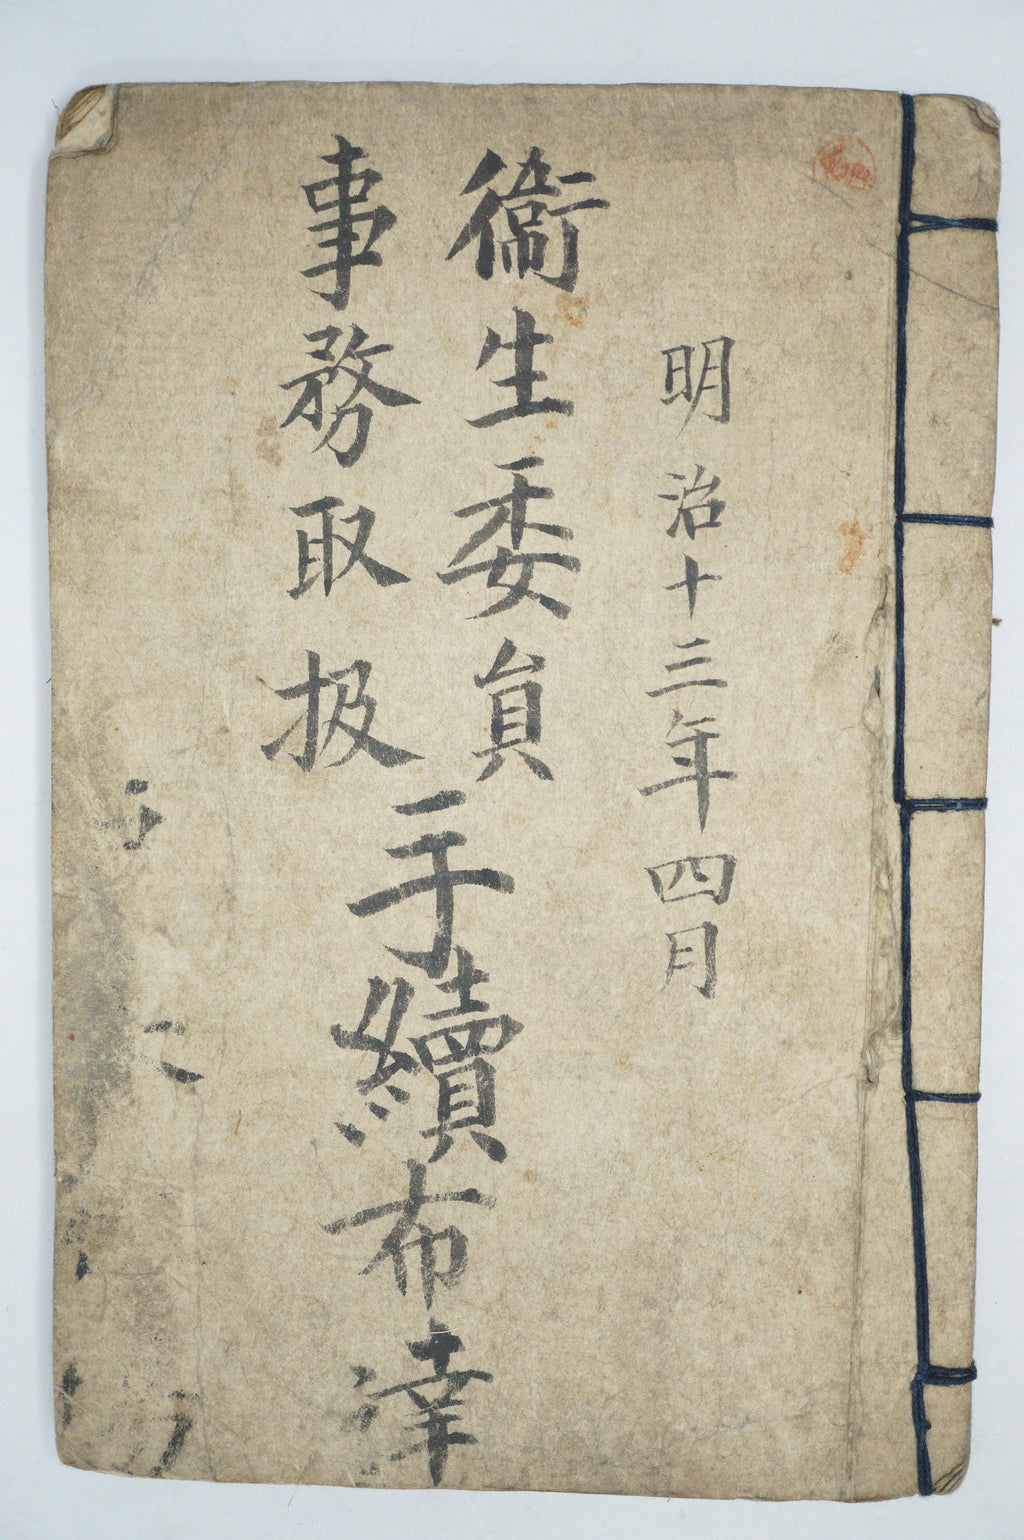 明治十三年四月
衞生委員
事務取扱
手續布達